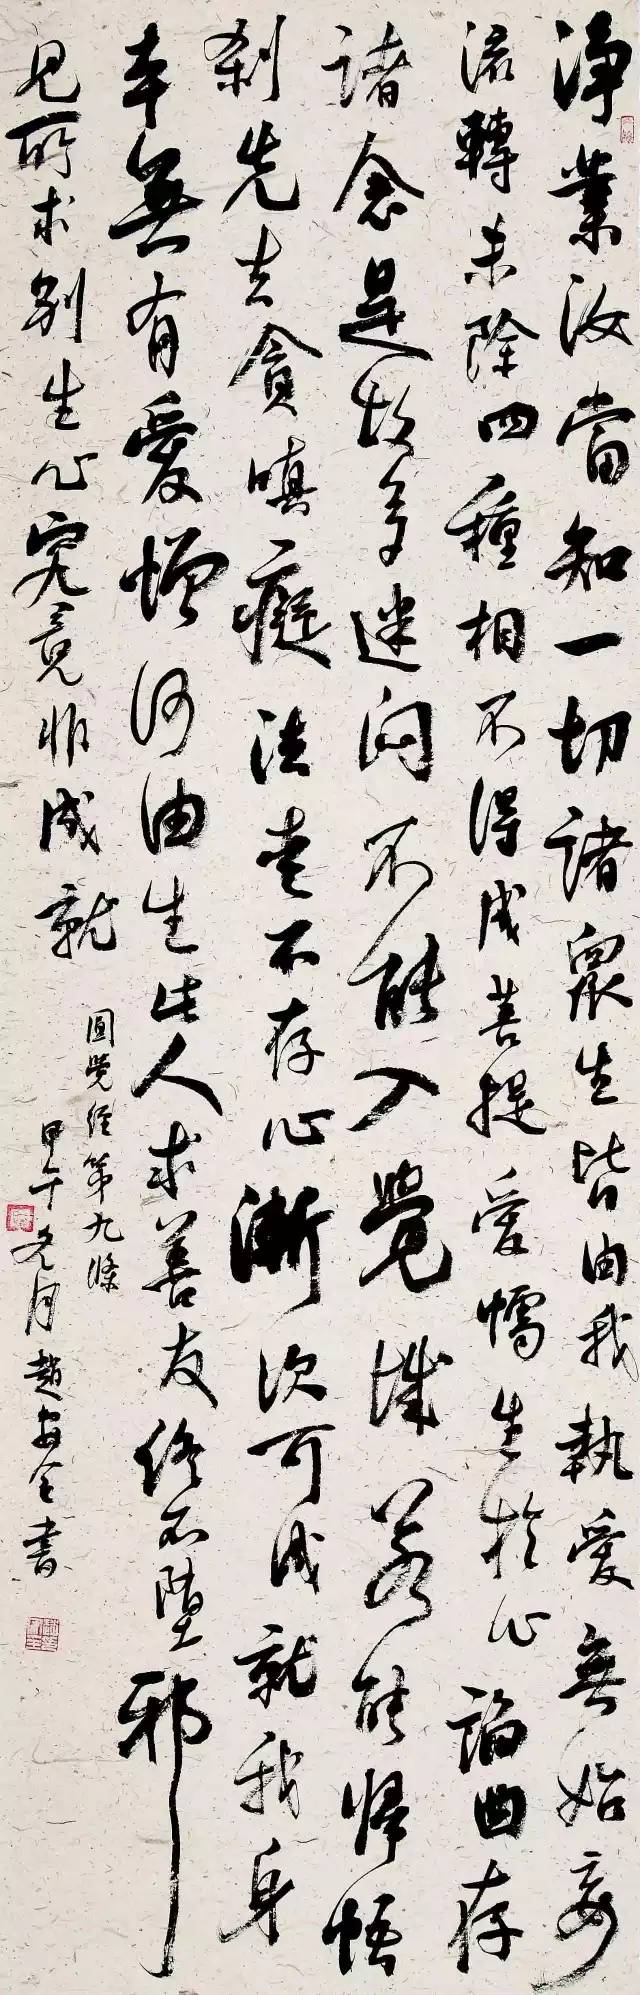 淨業汝當知一切諸眾生皆由我執愛無始妄
流轉未除四種相不得成菩提愛憎生於心諂曲存
諸念是故多迷悶不能入覺城若能歸悟
刹先去貪嗔癡法愛不存心漸次可成就我身
本無有愛憎何由生此人求善友終不墮邪
見所求別生心究竟非成就
圓覺經第九條
甲午冬月趙安全書